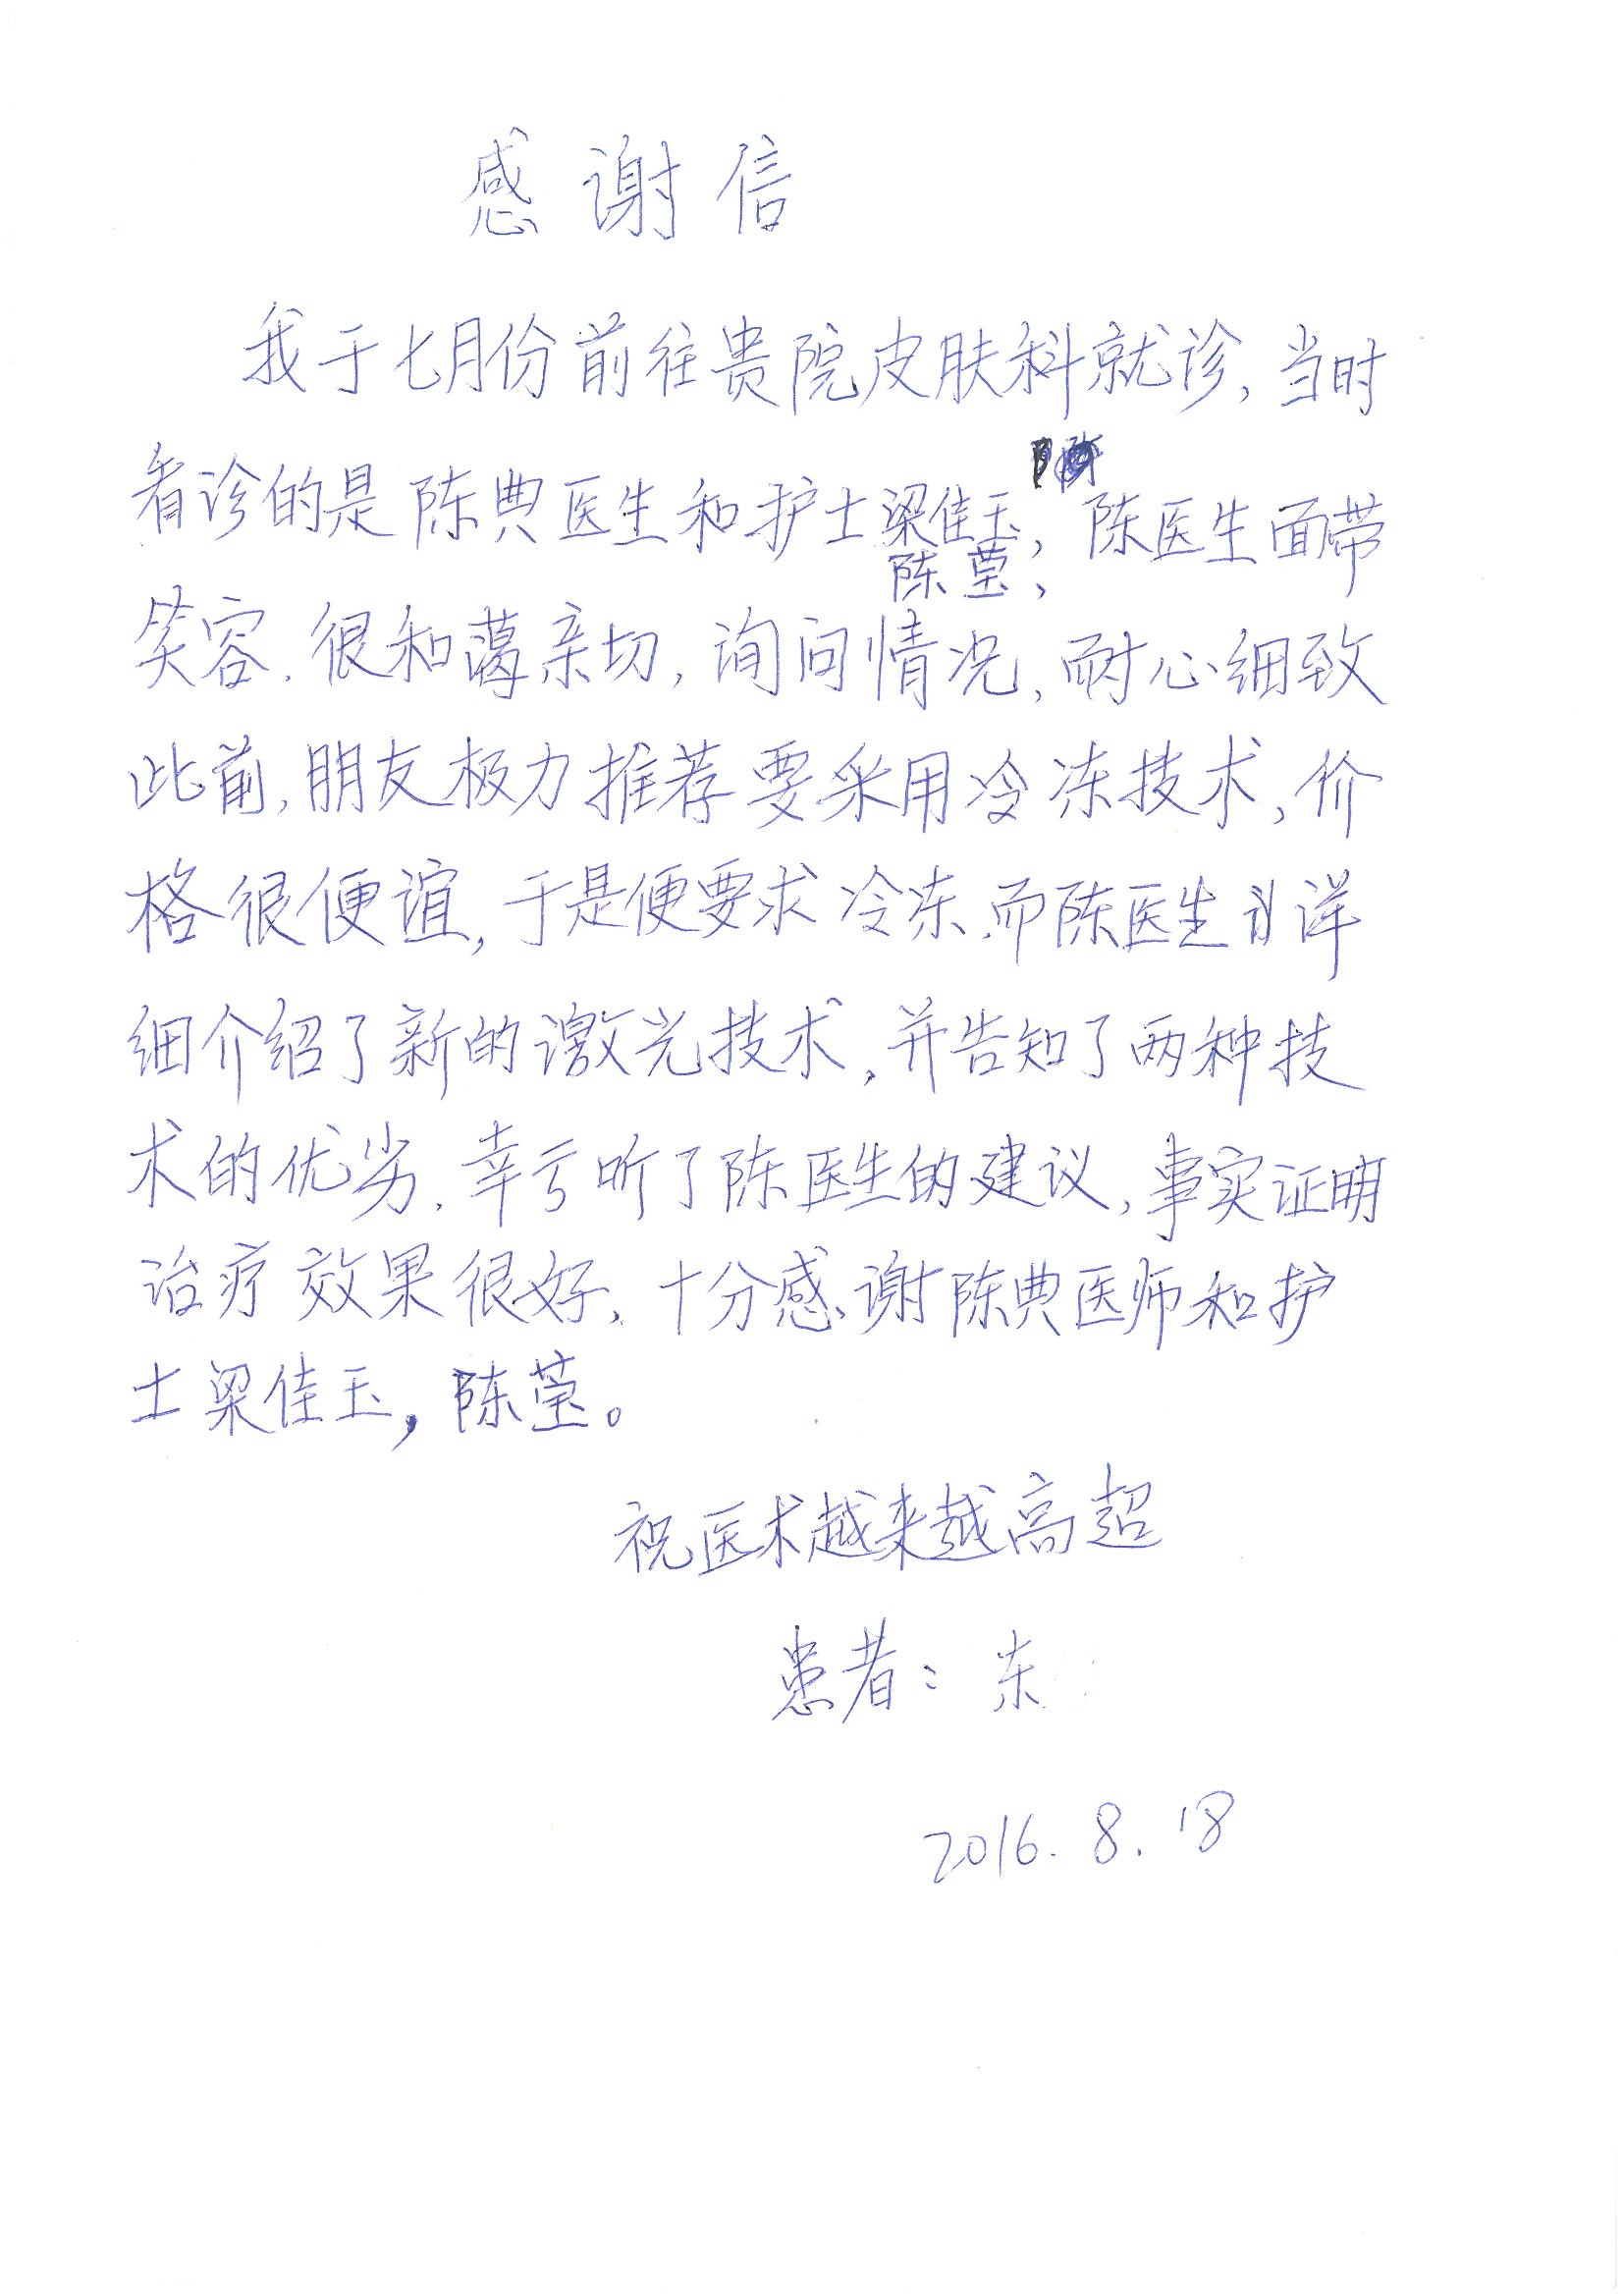 感谢信
我于七月份前往贵院皮肤科就诊,当时
看诊的是陈典医生和护士梁佳玉,陈医生面带
陈莹、
笑容.很和蔼亲切,询问情况,耐心细致
此前,朋友极力推荐要采用冷冻技术,价
格很便谊,于是便要求冷冻.而陈医生详
细介绍了新的激光技术,并告知了两种技
术的优劣.幸亏听了陈医生的建议,事实证明
治疗效果很好.十分感谢陈典医师和护
士梁佳玉,陈莹。
祝医术越来越高超
患者:东
2016.8.18